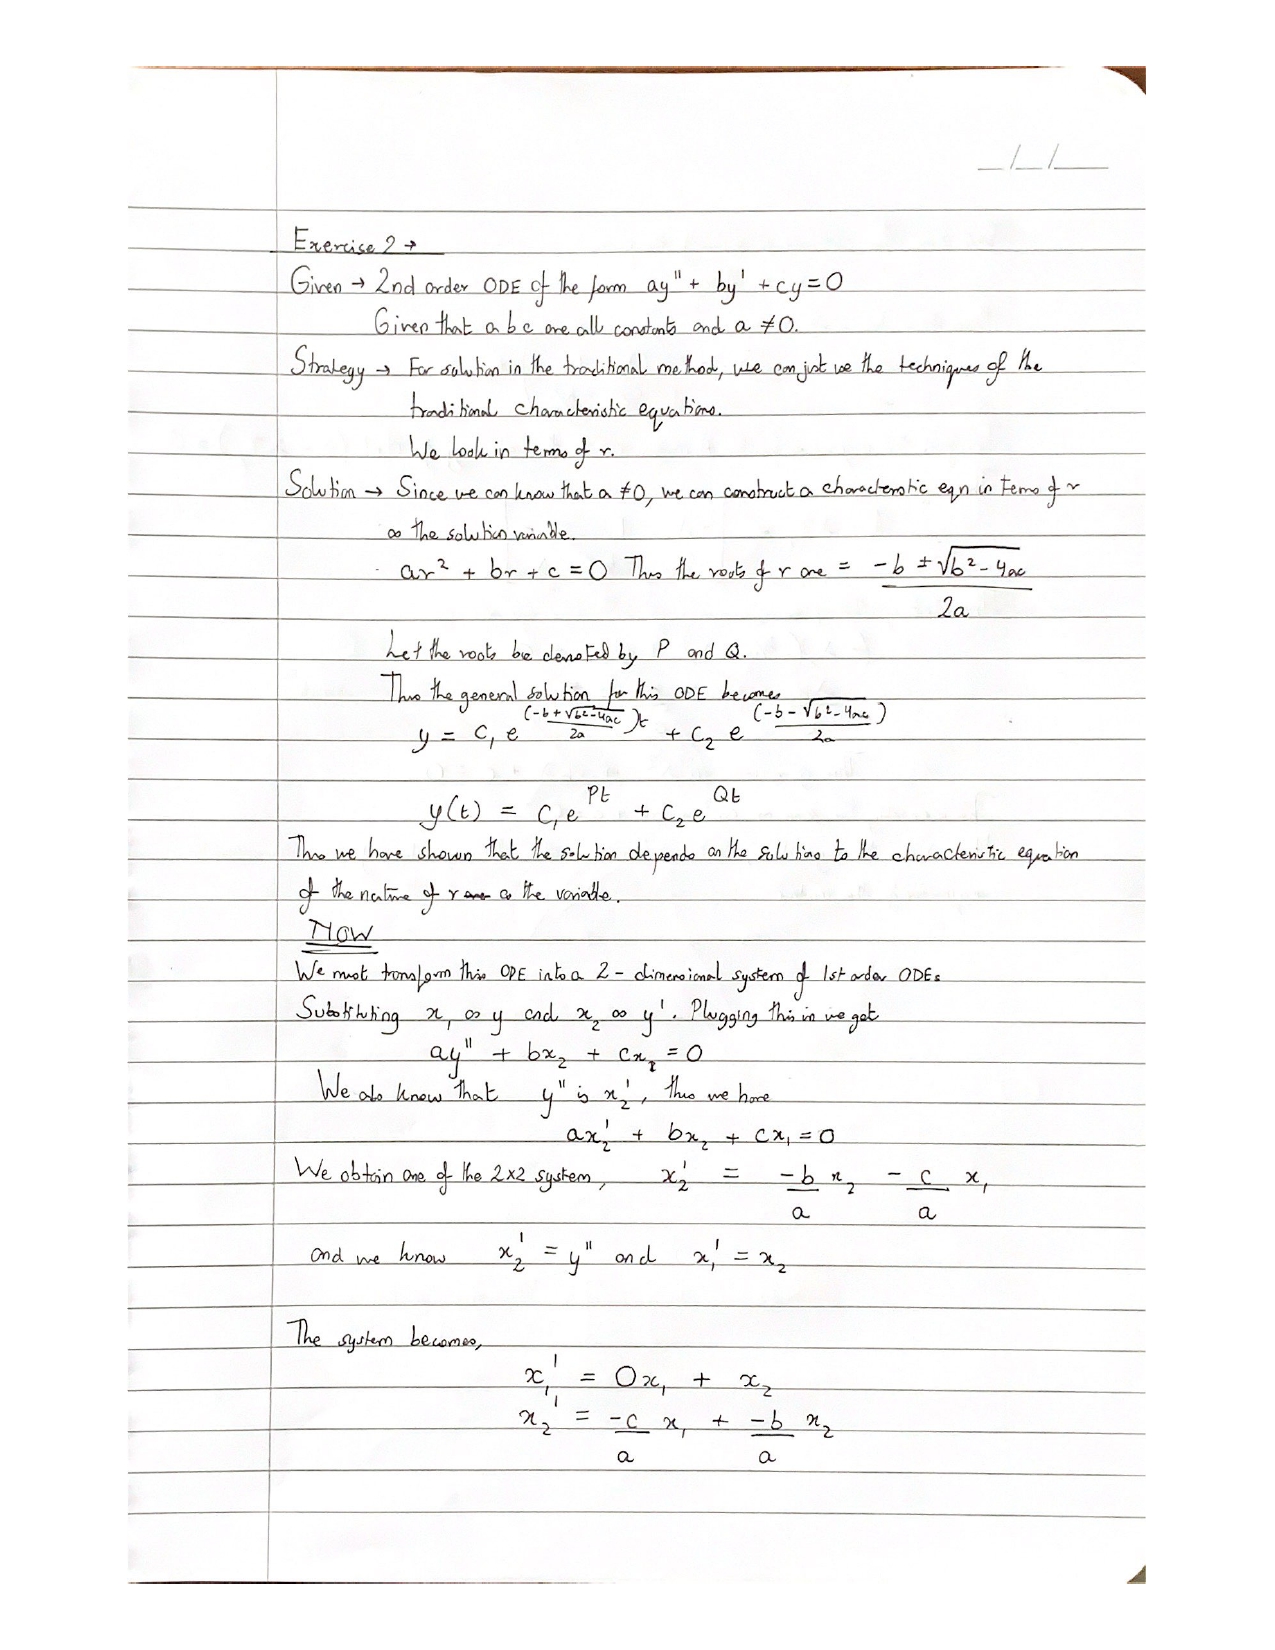 _/_/___
Exercise 2 →
Given → 2nd order ODE of the form ay" + by' + cy = 0
Given that a b c are all constants and a ≠ 0.
Strategy → For solution in the traditional method, we can just use the techniques of the
traditional characteristic equations.
We look in terms of r.
Solution → Since we can know that a ≠ 0, we can construct a characteristic eqn in terms of r
as the solution variable.
ar² + br + c = 0 Thus the roots of r are = (-b ± √(b² - 4ac)) / 2a
Let the roots be denoted by P and Q.
Thus the general solution for this ODE becomes
y = C₁ e^((-b + √(b² - 4ac)) / 2a)t + C₂ e^((-b - √(b² - 4ac)) / 2a)
y(t) = C₁e^Pt + C₂e^Qt
Thus we have shown that the solution depends on the solutions to the characteristic equation
of the nature of r as the variable.
NOW
We must transform this ODE into a 2-dimensional system of 1st order ODEs
Substituting x₁ as y and x₂ as y'. Plugging this in we get
ay" + bx₂ + cx₁ = 0
We also know that y" is x₂', thus we have
ax₂' + bx₂ + cx₁ = 0
We obtain one of the 2x2 system, x₂' = -b/a x₂ - c/a x₁
and we know x₂' = y" and x₁' = x₂
The system becomes,
x₁' = 0x₁ + x₂
x₂' = -c/a x₁ + -b/a x₂